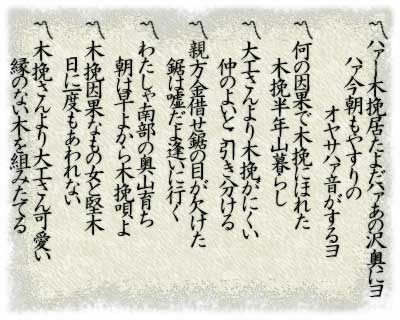 〽ハアー木挽居たよだハアあの沢奥にヨ
ハア今朝もやすりの
オヤサハア音がするヨ
〽何の因果で木挽にほれた
木挽半年山暮らし
〽大工さんより木挽がにくい
仲のよいとこ引き分ける
〽親方金借せ鋸の目が欠けた
鋸は嘘だよ逢いに行く
〽わたしゃ南部の奥山育ち
朝は早よから木挽唄よ
〽木挽因果なもの女と堅木
日に一度もあわれない
〽木挽さんより大工さん可愛い
縁のない木を組みたてる